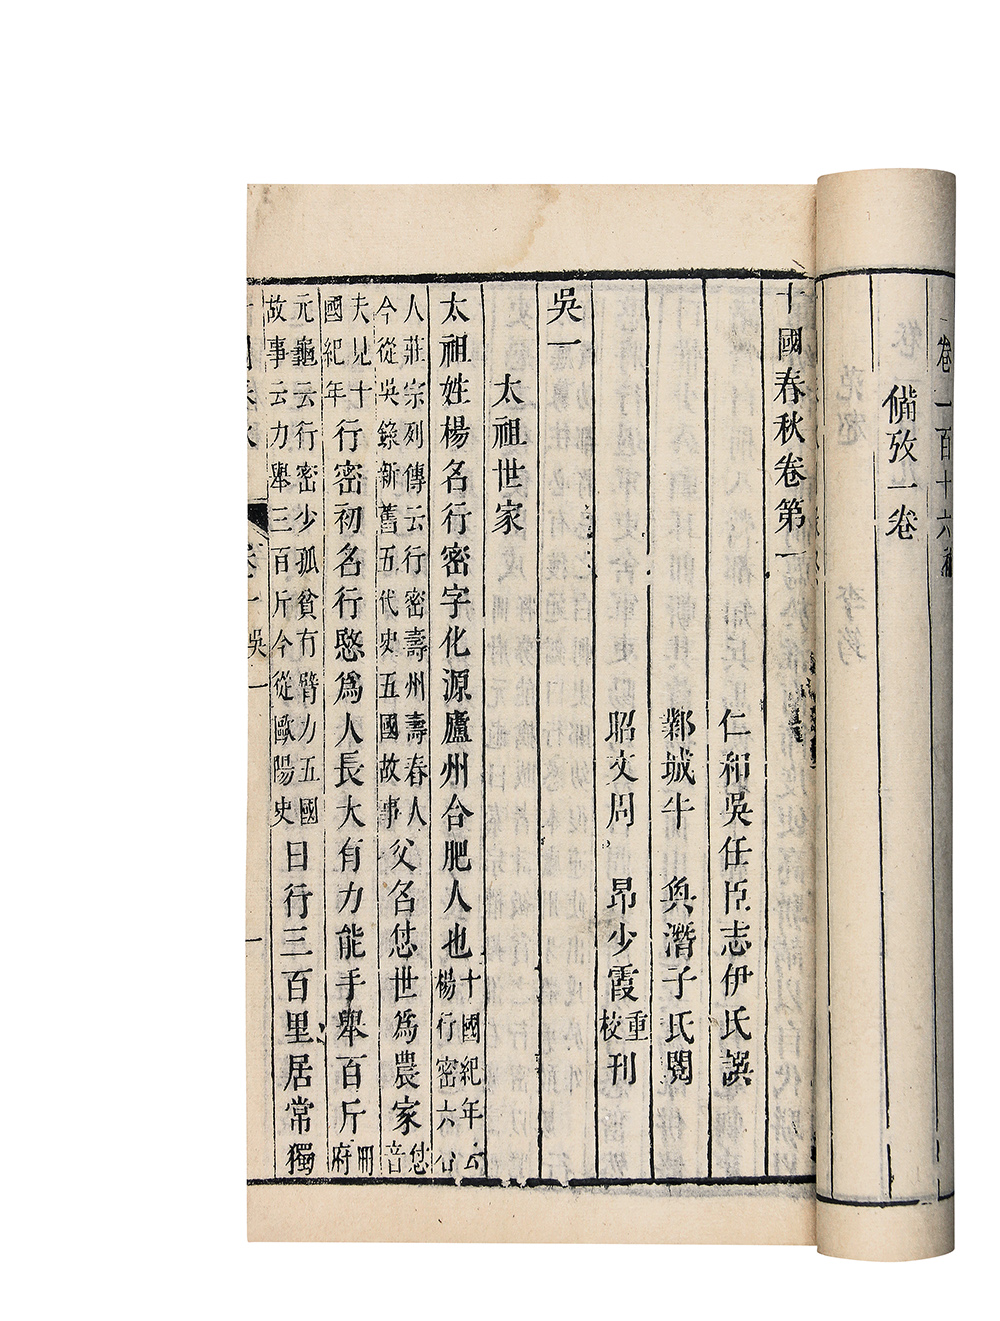 卷一百十六補
備攷一卷
十國春秋卷第一
仁和吳任臣志伊氏譔
鄴城牛　奐潛子氏閱
昭文周　昂少霞重校刊
吳一
太祖世家
太祖姓楊名行密字化源廬州合肥人也十國紀年云楊行密六合
人莊宗列傳云行密壽州壽春人今從吳錄新舊五代史五國故事父名怤世爲農家怤音
夫見十國紀年行密初名行愍爲人長大有力能手舉百斤冊府
元龜云行密少孤貧有臂力五國故事云力舉三百斤今從歐陽史日行三百里居常獨
卷一 吳一 一